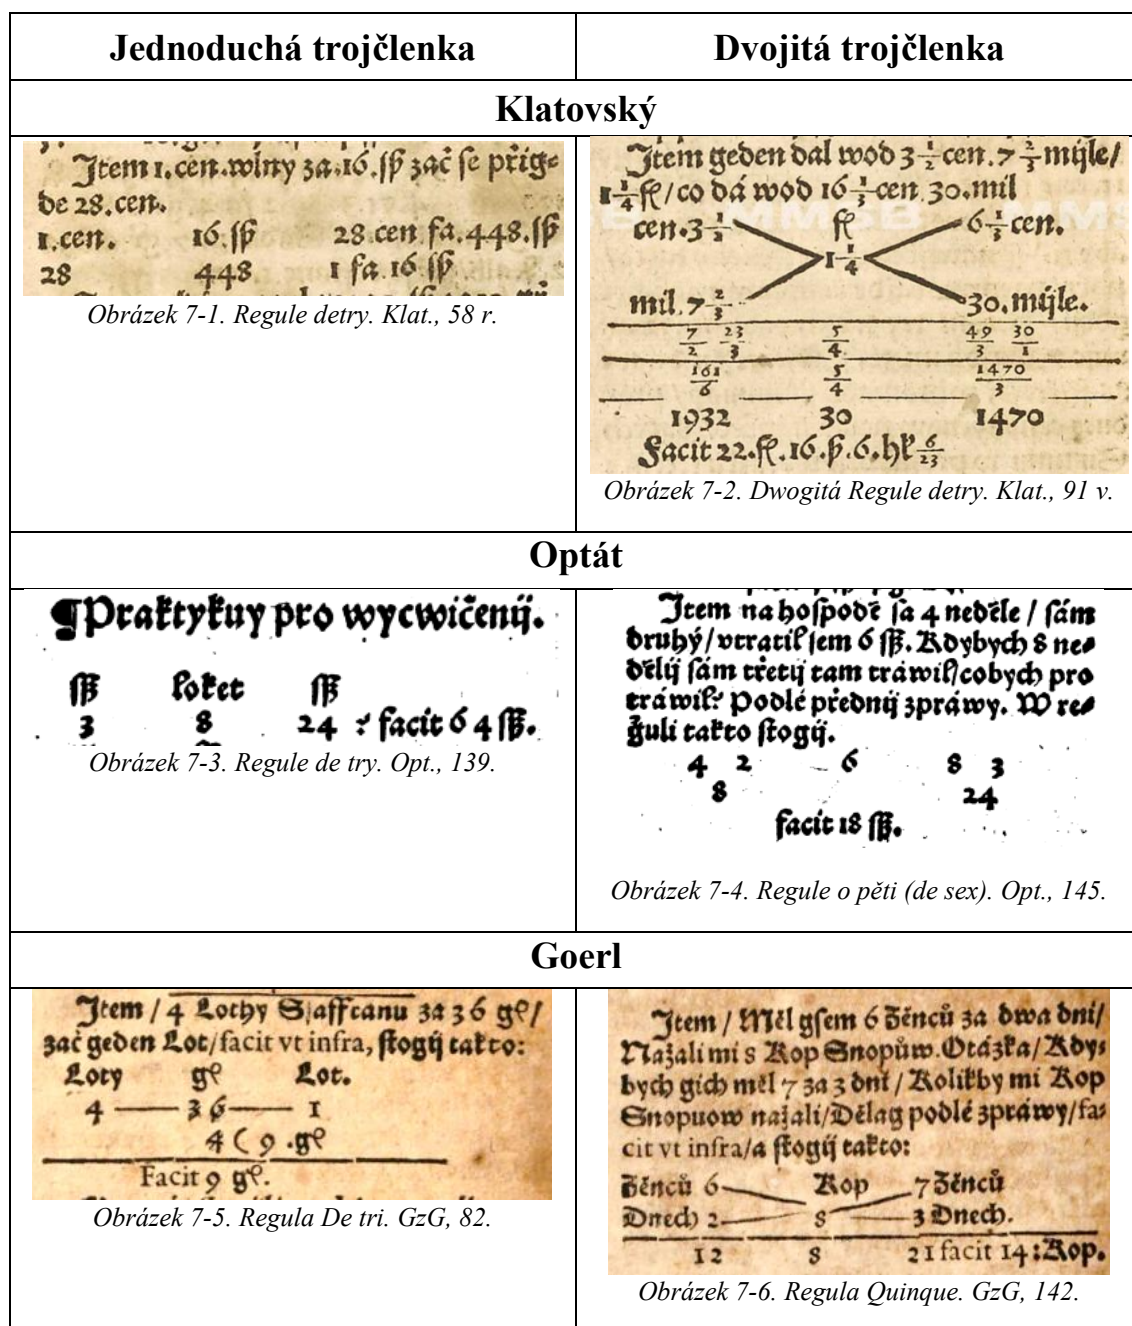 Jednoduchá trojčlenka
Dvojitá trojčlenka
Klatovský
Jtem 1.cen.wlny za.16.ſß zač ſe přig⸗
de 28.cen.
1.cen. 16.ſß 28.cen fa.448.ſß
28 448 1 fa.16 ſß
Obrázek 7-1. Regule detry. Klat., 58 r.
Jtem geden dal wod 3 1/2 cen. 7 2/3 mijle/
1 1/4 fl/co dá wod 16 1/3 cen 30.mil
cen.3 1/2 fl 6 1/3 cen.
1 1/4
mil.7 2/3 30.mijle.
7/2 23/3 5/4 49/3 30/1
161/6 5/4 1470/3
1932 30 1470
Facit 22.fl.16.ß.6.hl 6/23
Obrázek 7-2. Dwogitá Regule detry. Klat., 91 v.
Optát
¶Praktykuy pro wycwičenij.
ſß loket ſß
3 8 24 : facit 64 ſß.
Obrázek 7-3. Regule de try. Opt., 139.
Jtem na hoſpodě ſa 4 neděle / ſám
druhý/vtratil ſem 6 ſß. Kdybych 8 ne⸗
dělij ſám třetij tam tráwil/cobych pro
tráwil? Podlé přednij zpráwy. W re⸗
guli takto ſtogij.
4 2 6 8 3
8 24
facit 18 ſß.
Obrázek 7-4. Regule o pěti (de sex). Opt., 145.
Goerl
Jtem / 4 Lothy Sſaffranu za 36 gł/
zač geden Lot/facit vt infra, ſtogij takto:
Loty gł Lot.
4 — 36 — 1
4 ( 9 .gł
Facit 9 gł.
Obrázek 7-5. Regula De tri. GzG, 82.
Jtem / Měl gſem 6 Ženců za dwa dni/
Nažali mi 8 Kop Snopůw. Otázka/Kdy⸗
bych gich měl 7 za 3 dni / Kolikby mi Kop
Snopuow nažali/Dělag podlé zpráwy/fa⸗
cit vt infra/a ſtogij takto:
Ženců 6 Kop 7 Ženců
Dnech 2 8 3 Dnech.
12 8 21 facit 14 : Kop.
Obrázek 7-6. Regula Quinque. GzG, 142.